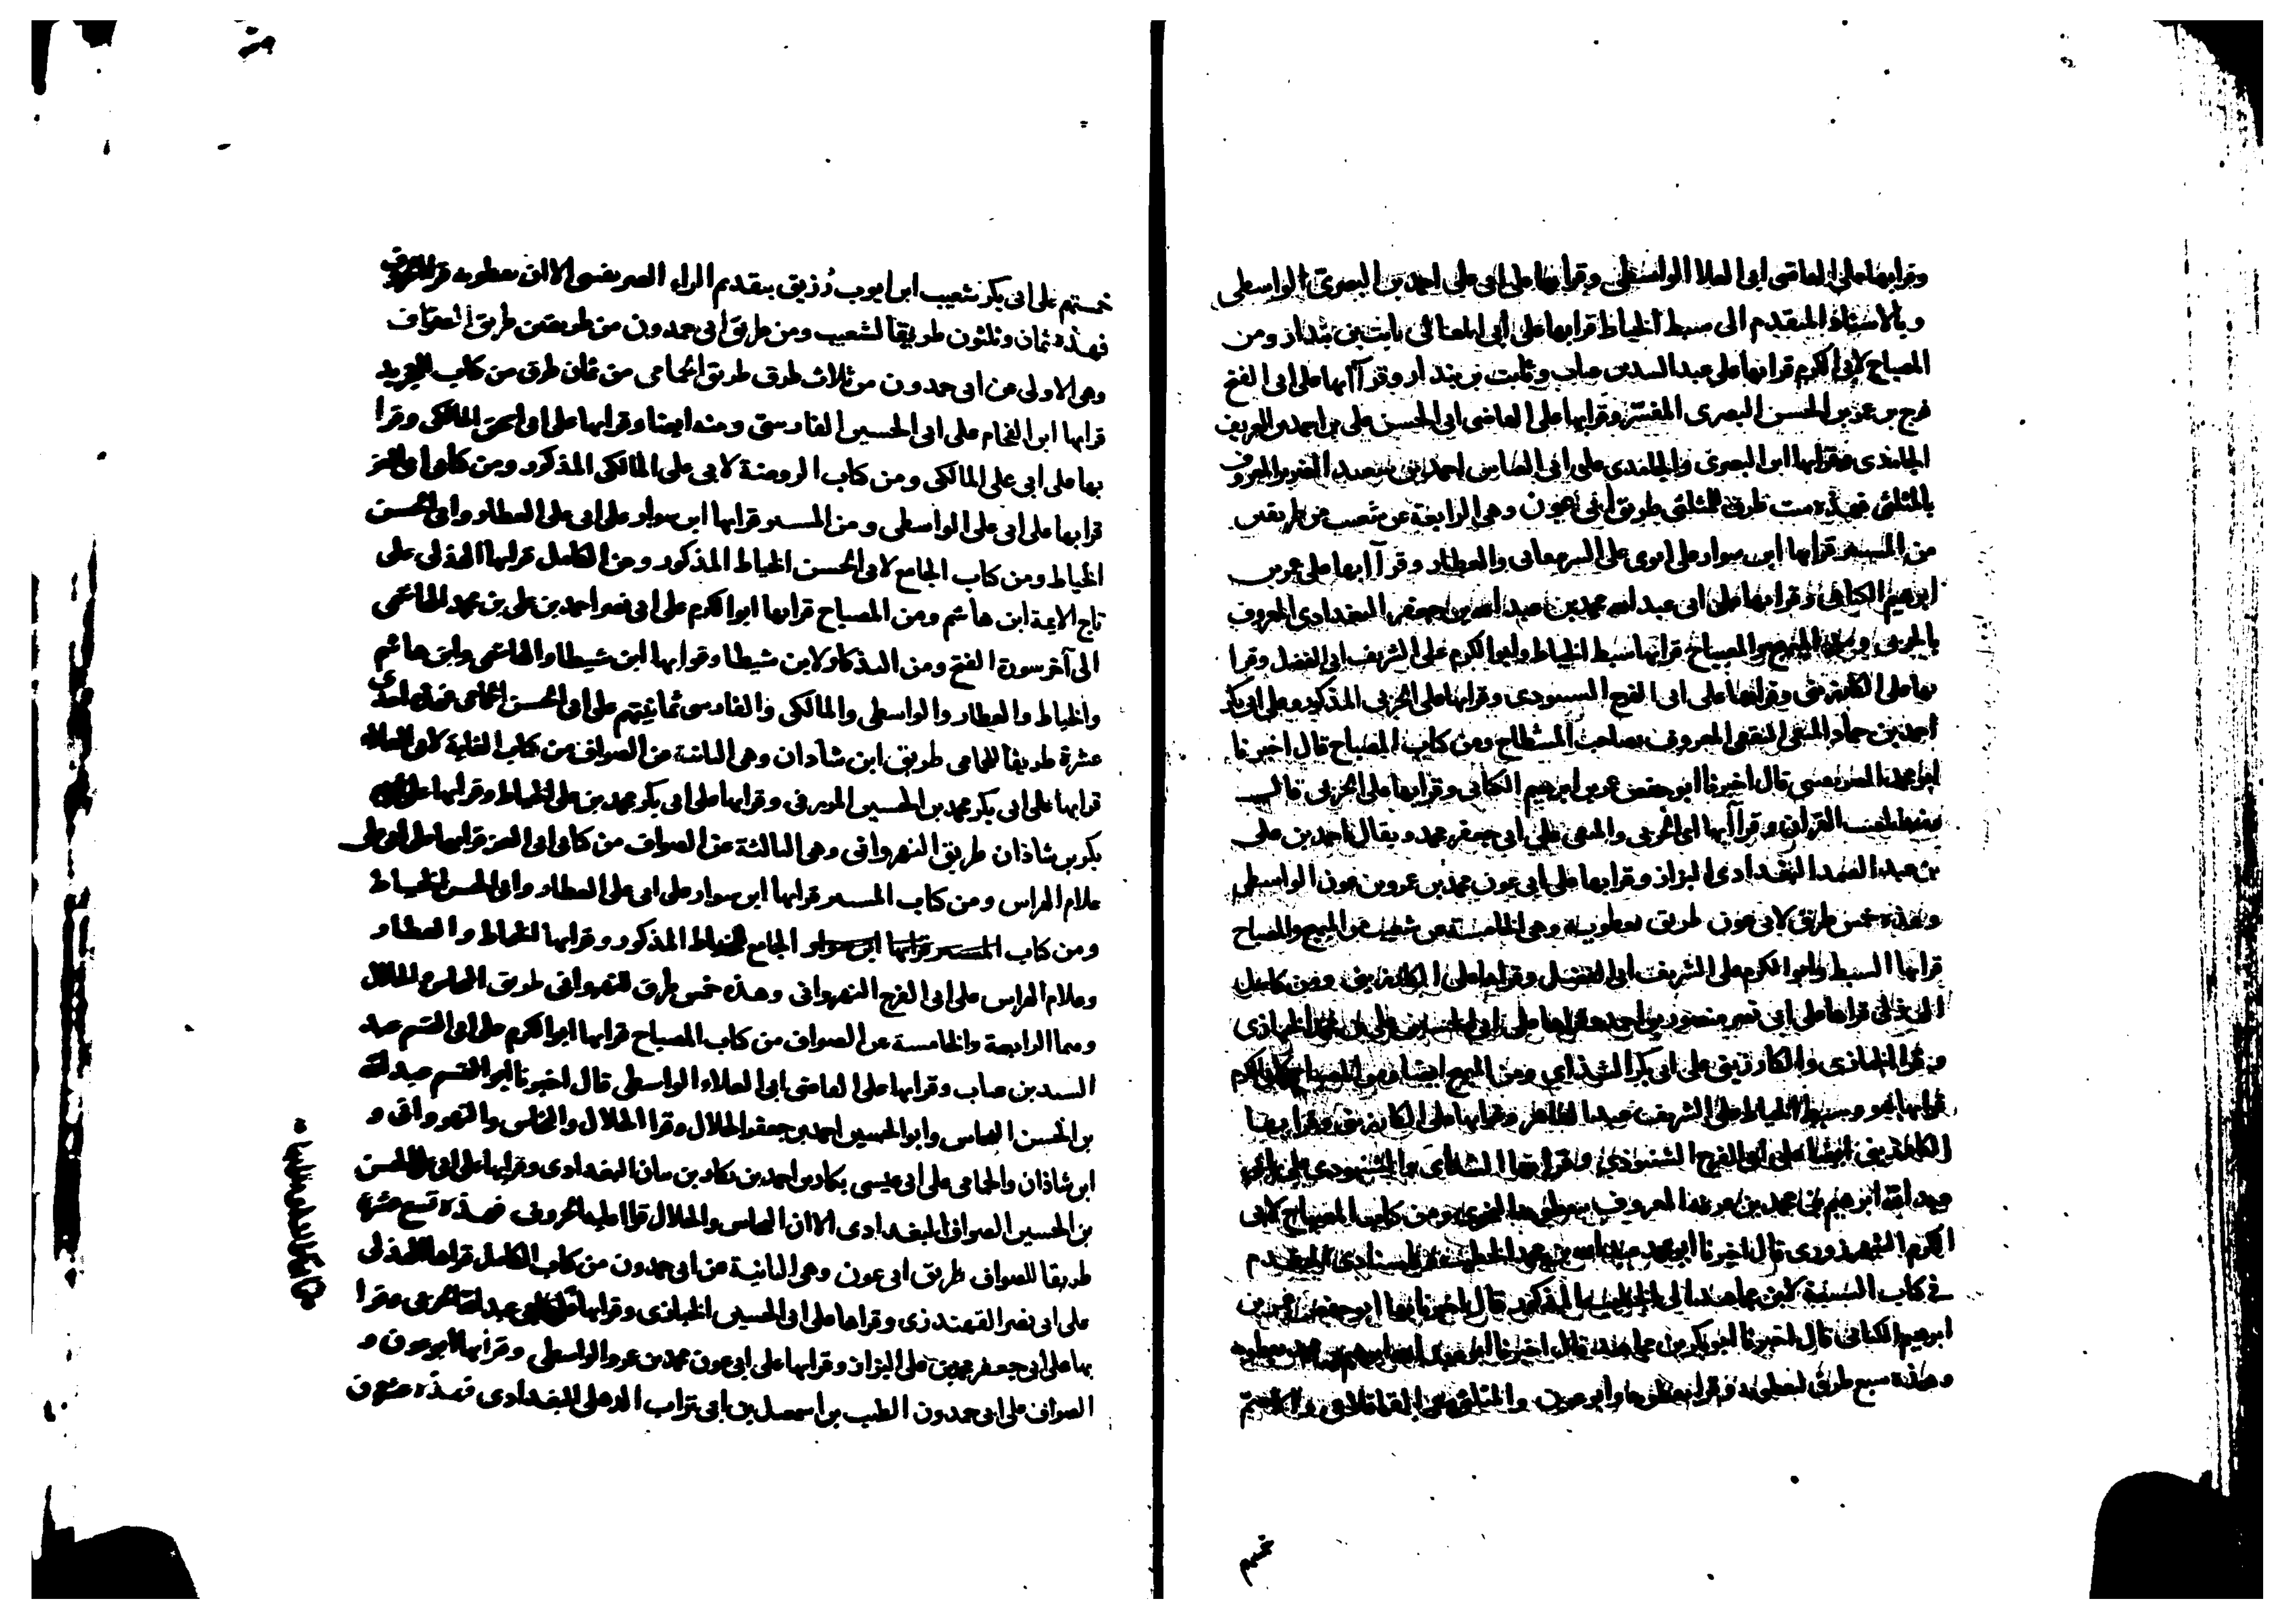 وقرا بها على القاضى ابى العلا الواسطى وقرا بها على ابى على احمد بن البصرى الواسطى
وبالاسناد المتقدم الى سبط الخياط قرا بها على ابى المعالى ثابت بن بندار ومن
المصباح لابى الكرم قرا بها على عبد السيد بن عتاب وثابت بن بندار وقرآ بها على ابى الفتح
فرج بن عمر بن الحسن البصرى المفسر وقرا بها على القاضى ابى الحسن على بن احمد بن العريف
الجامدى وقرا بها ابن البصرى والجامدى على ابى العباس احمد بن سعيد الضرير المعروف
بالمثلثى فهذه ست طرق للمثلثى طريق ابى عون وهى الرابعة عن شعيب من طريقين
من المستنير قرا بها ابن سوار على ابوى على الشرمقانى والعطار وقرآ بها على عمر بن
ابرهيم الكتانى وقرا بها على ابى عبد الله محمد بن عبد الله بن جعفر البغدادى المعروف
بالحربى ومن المبهج والمصباح قرا بها سبط الخياط وابو الكرم على الشريف ابى الفضل وقرا
بها على الكارزينى وقرا بها على ابى الفرج الشنبوذى وقرا بها على الحربى المذكور وعلى ابى بكر
احمد بن حماد المنقى الثقفى المعروف بصاحب المشطاح ومن كتاب المصباح قال اخبرنا
ابو محمد الصريفينى قال اخبرنا ابو حفص عمر بن ابرهيم الكتانى وقرا بها على الحربى قال
القران وقرآ بها اى الحربى والمنقى على ابى جعفر محمد ويقال احمد بن على
بن عبد الصمد البغدادى البزاز وقرا بها على ابى عون محمد بن عمرو بن عون الواسطى
وهذه خمس طرق لابى عون طريق نفطويه وهى الخامسة عن شعيب من المبهج والمصباح
قرا بها السبط وابو الكرم على الشريف ابى الفضل وقرا بها على الكارزينى ومن كامل
الهذلى قرا بها على ابى نصر منصور بن احمد وقرا بها على ابى الحسين على بن محمد الخبازى
وقرا الخبازى والكارزينى على ابى بكر الشذاى ومن المبهج ايضا ومن المصباح لابى الكرم
قرا بها هو وسبط الخياط على الشريف عبد القاهر وقرا بها على الكارزينى وقرا بها
الكارزينى ايضا على ابى الفرج الشنبوذى وقرا بها الشذاى والشنبوذى على ابى
عبد الله ابرهيم بن محمد بن عرفة المعروف بنفطويه النحوى ومن كتاب المصباح لابى
الكرم الشهرزورى قال اخبرنا ابو محمد عبد الله بن محمد الخطيب المتقدم
فى كتاب السبعة لابن مجاهد الى الخطيب المذكور قال اخبرنا بها ابو حفص عمر بن
ابرهيم الكتانى قال اخبرنا ابو بكر بن مجاهد قال اخبرنا نفطويه
وهذه سبع طرق لنفطويه وقرا نفطويه وابو عون والمثلثى والقافلانى والاصم
خمستهم
خمستهم على ابى بكر شعيب ابن ايوب رزيق بتقديم الراء الصريفينى الا ان نفطويه قرا الحروف
فهذه ثمان وثلثون طريقا لشعيب ومن طريق ابى حمدون من طريقين طريق الصواف
وهى الاولى عن ابى حمدون من ثلاث طرق طريق الحمامى من ثمان طرق من كتاب التجريد
قرا بها ابن الفحام على ابى الحسين الفارسى ومنه ايضا وقرا بها على ابن اسحق المالكى وقرا
بها على ابى على المالكى ومن كتاب الروضة لابى على المالكى المذكور ومن كتابى ابى العز
قرا بها على ابى على الواسطى ومن المستنير قرا بها ابن سوار على ابى على العطار وابى الحسن
الخياط ومن كتاب الجامع لابى الحسن الخياط المذكور ومن الكامل قرا بها الهذلى على
تاج الايمة ابن هاشم ومن المصباح قرا بها ابو الكرم على ابى نصر احمد بن على بن محمد الهاشمى
الى آخر سورة الفتح ومن التذكار لابن شيطا وقرا بها ابن شيطا والهاشمى وابن هاشم
والخياط والعطار والواسطى والمالكى والفارسى ثمانيتهم على ابى الحسن الحمامى فهذه احدى
عشرة طريقا للحمامى طريق ابن شاذان وهى الثانية عن الصواف من كتاب الغاية لابى العلاء
قرا بها على ابى بكر محمد بن الحسين المزرفى وقرا بها على ابى بكر محمد بن على الخياط وقرا بها على ابى
بكر بن شاذان طريق النهروانى وهى الثالثة عن الصواف من كتابى ابى العز قرا بها على ابى على
غلام الهراس ومن كتاب المستنير قرا بها ابن سوار على ابى على العطار وابى الحسن الخياط
ومن كتاب المستنير قرا بها ابن سوار الجامع للخياط المذكور وقرا بها الخياط والعطار
وغلام الهراس على ابى الفرج النهروانى وهذه خمس طرق للنهروانى طريق النحاس والخلال
وهما الرابعة والخامسة عن الصواف من كتاب المصباح قرا بها ابو الكرم على ابى القسم عبد
السيد بن عتاب وقرا بها على القاضى ابى العلاء الواسطى قال اخبرنا ابو القسم عبد الله
بن الحسن النحاس وابو الحسين احمد بن جعفر الخلال وقرا الخلال والنحاس والنهروانى و
ابن شاذان والحمامى على ابى عيسى بكار بن احمد بن بكار بن بنان البغدادى وقرا بها على ابى على الحسن
بن الحسين الصواف البغدادى الا ان النحاس والخلال قرا عليه الحروف فهذه تسع عشرة
طريقا للصواف طريق ابى عون وهى الثانية عن ابى حمدون من كتاب الكامل قرا بها الهذلى
على ابى نصر القهندزى وقرا بها على ابى الحسين الخبازى وقرا بها على ابى عبد الله الحربى وقرا
بها على ابى جعفر محمد بن على البزاز وقرا بها على ابى عون محمد بن عمرو الواسطى وقرا بها ابو عون و
الصواف على ابى حمدون الطيب بن اسمعيل بن ابى تراب الذهلى البغدادى فهذه عشرون